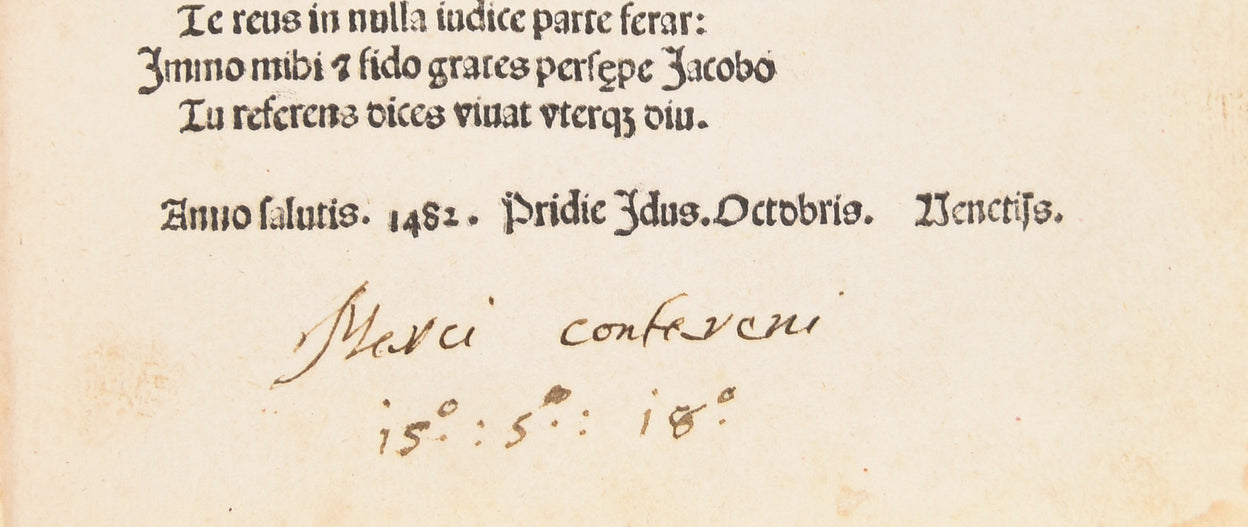 Te reus in nulla iudice parte ferar:
Immo mihi ⁊ fido grates persępe Jacobo
Tu referens dices viuat vterqꝫ diu.
Anno salutis. 1482. Pridie Idus. Octobris. Venetijs.
Merci contereni
i5º : 5º : i8º